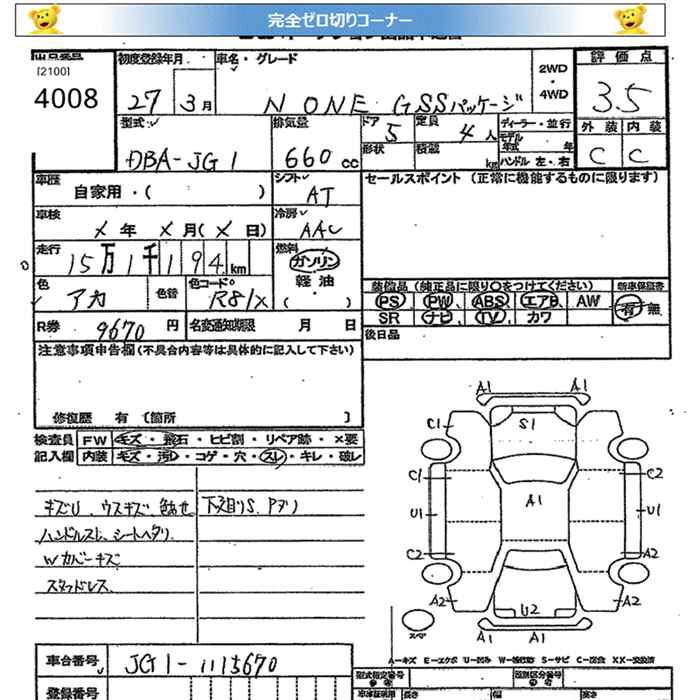 完全ゼロ切りコーナー
[2100]
4008
初度登録年月
27年 3月
車名・グレード
N ONE GSSパッケージ
2WD
・
4WD
評価点
3.5
外装 内装
C C
型式
DBA-JG1
排気量
660 cc
ドア 5
形状
定員 4人
積載 kg
ディーラー・並行
モデル年式 年
ハンドル 左・右
車歴
自家用・( )
シフト
AT
セールスポイント (正常に機能するものに限ります)
車検
年 月( 日)
冷房
AAC
走行
15万1千194km
燃料
ガソリン
軽油
・( )
色
アカ
色替
色コードNo
R81X
装備品 (純正品に限り○をつけてください)
新車保証書
PS PW ABS エアB AW
有・無
SR ナビ TV カワ
R券 9670 円
名変通知期限 月 日
後日品
注意事項申告欄 (不具合内容等は具体的に記入して下さい)
修復歴 有 〔箇所 〕
検査員
記入欄
FW キズ・飛石・ヒビ割・リペア跡・×要
内装 キズ・汚レ・コゲ・穴・スレ・キレ・破レ
キズU、ウスキズ、色あせ
下廻りS、Pブリ
ハンドルスレ、シートヘタリ
Wカバーキズ
スタッドレス
A1
A1
C1
S1
C1
C2
A1
U1
U1
C2
A2
A2
U2
A2
A1
A1
スペア
A-キズ E-エクボ U-凹み W-補修跡 S-サビ C-腐食 XX-交換済
車台番号
JG1-1115670
登録番号
型式指定番号
類別区分番号
長さ
幅
高さ